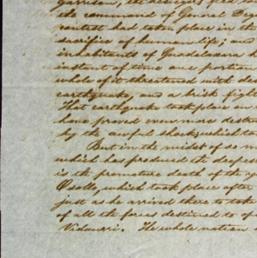 garrison, the
the command of General Deg
contest had taken place in the
sacrifice of human life; and
inhabitants of Guadalaxara h
instant of time one portion
whole of it threatened with des
earthquake, and a brisk figh
That earthquake took place on
have proved even more destru
by the awful shocks which to
But in the midst of so m
which has produced the deepest
is the premature death of the
Osollo, which took place after
just as he arrived there to take
of all the forces destined to op
Vidaurri. The whole nation